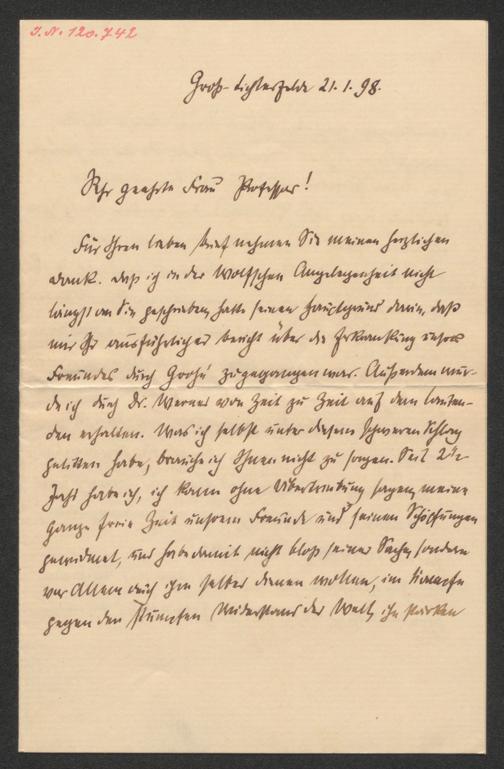 I.N. 120.742
Groß-Lichterfelde 21.1.98.
Sehr geehrte Frau Professor!
Für Ihren lieben Brief nehmen Sie meinen herzlichen
Dank. Daß ich in der Wolfschen Angelegenheit nicht
längst an Sie geschrieben, hatte seinen Hauptgrund darin, daß
mir Ihr ausführlicher Bericht über die Erkrankung unsres
Freundes durch Grohé zugegangen war. Außerdem wur-
de ich durch Dr. Werner von Zeit zu Zeit auf dem laufen-
den erhalten. Was ich selbst unter diesem schweren Schlag
gelitten habe, brauche ich Ihnen nicht zu sagen. Seit 2½
Jahr habe ich, ich kann ohne Übertreibung sagen, meine
ganze freie Zeit unserem Freunde und seinen Schöpfungen
gewidmet, und habe damit nicht bloß seiner Sache, sondern
vor Allem auch ihm selber dienen wollen, im Kampfe
gegen den stumpfen Widerstand der Welt, ihn stärken